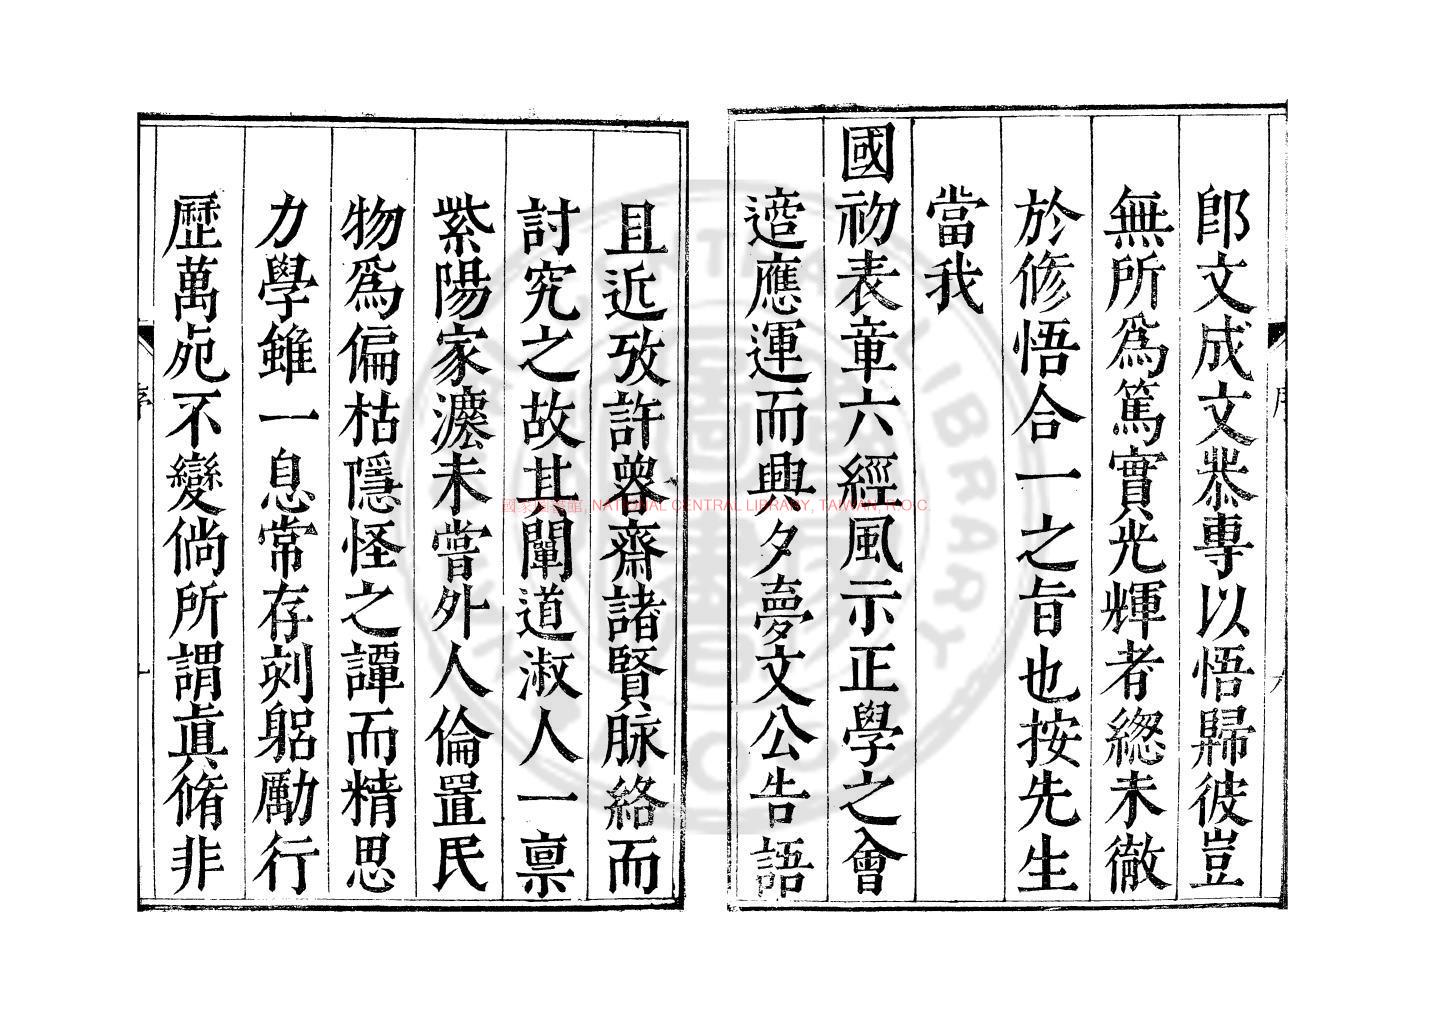 郎文成文恭專以悟歸彼豈
無所爲篤實光輝者緫未徹
於修悟合一之旨也按先生
當我
國初表章六經風示正學之會
遊應運而興夕夢文公告語
且近攷許魯齋諸賢脉絡而
討究之故其闡道淑人一禀
紫陽家灋未嘗外人倫置民
物爲偏枯隱怪之譚而精思
力學雖一息常存刻躬勵行
歷萬夗不變倘所謂眞脩非
序
國家圖書館, NATIONAL CENTRAL LIBRARY, TAIWAN, R.O.C